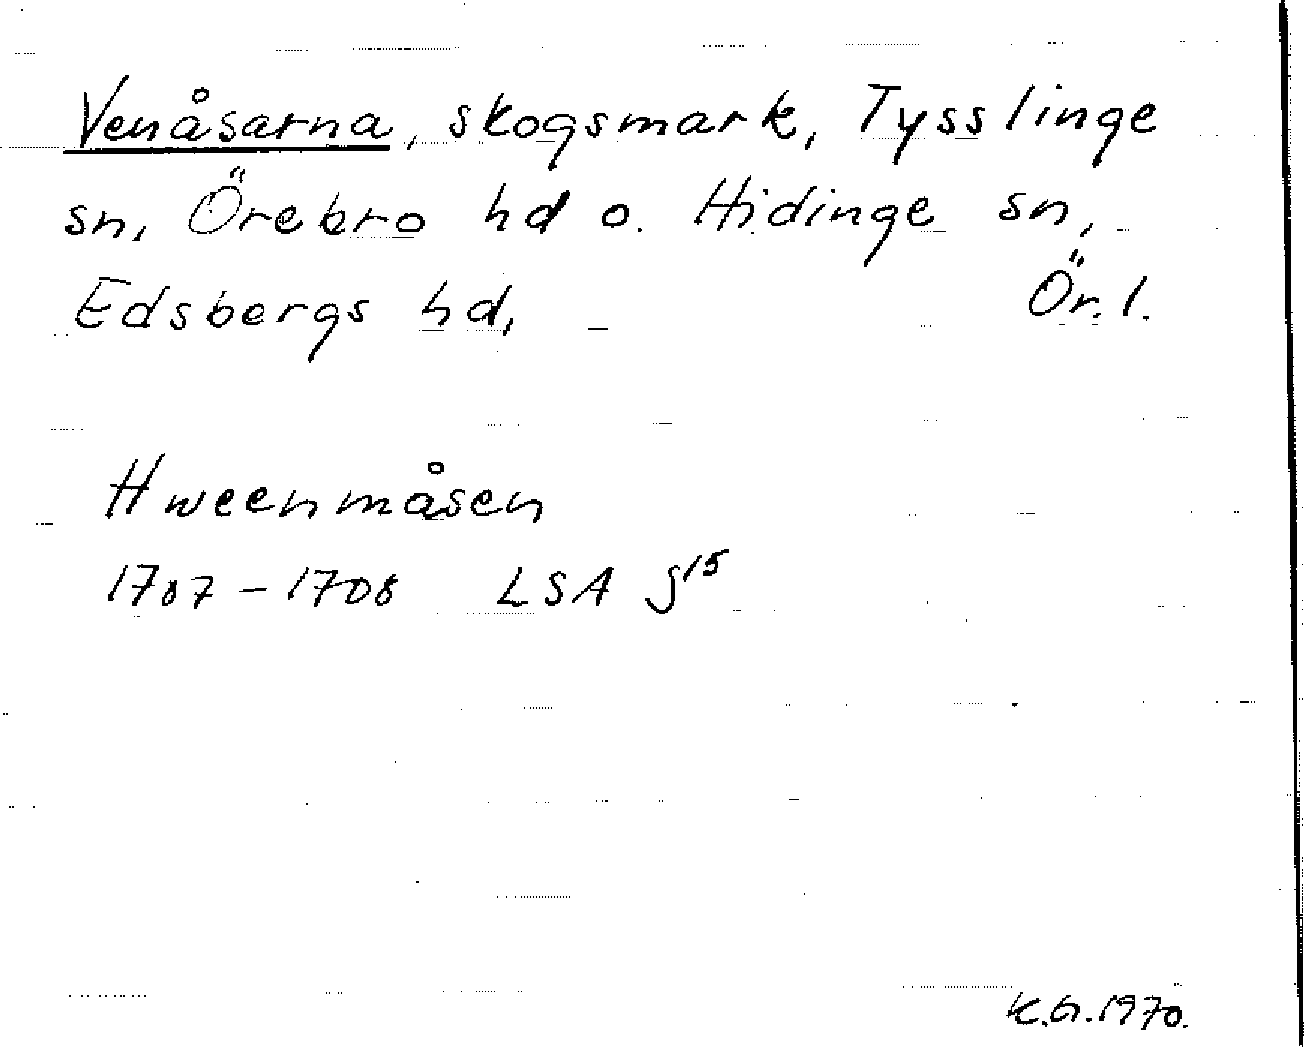 Venåsarna, skogsmark, Tysslinge
sn, Örebro hd o. Hidinge sn,
Edsbergs hd, Ör. l.
Hweenmåsen
1707-1708 LSA S¹⁵
K.G. 1970.